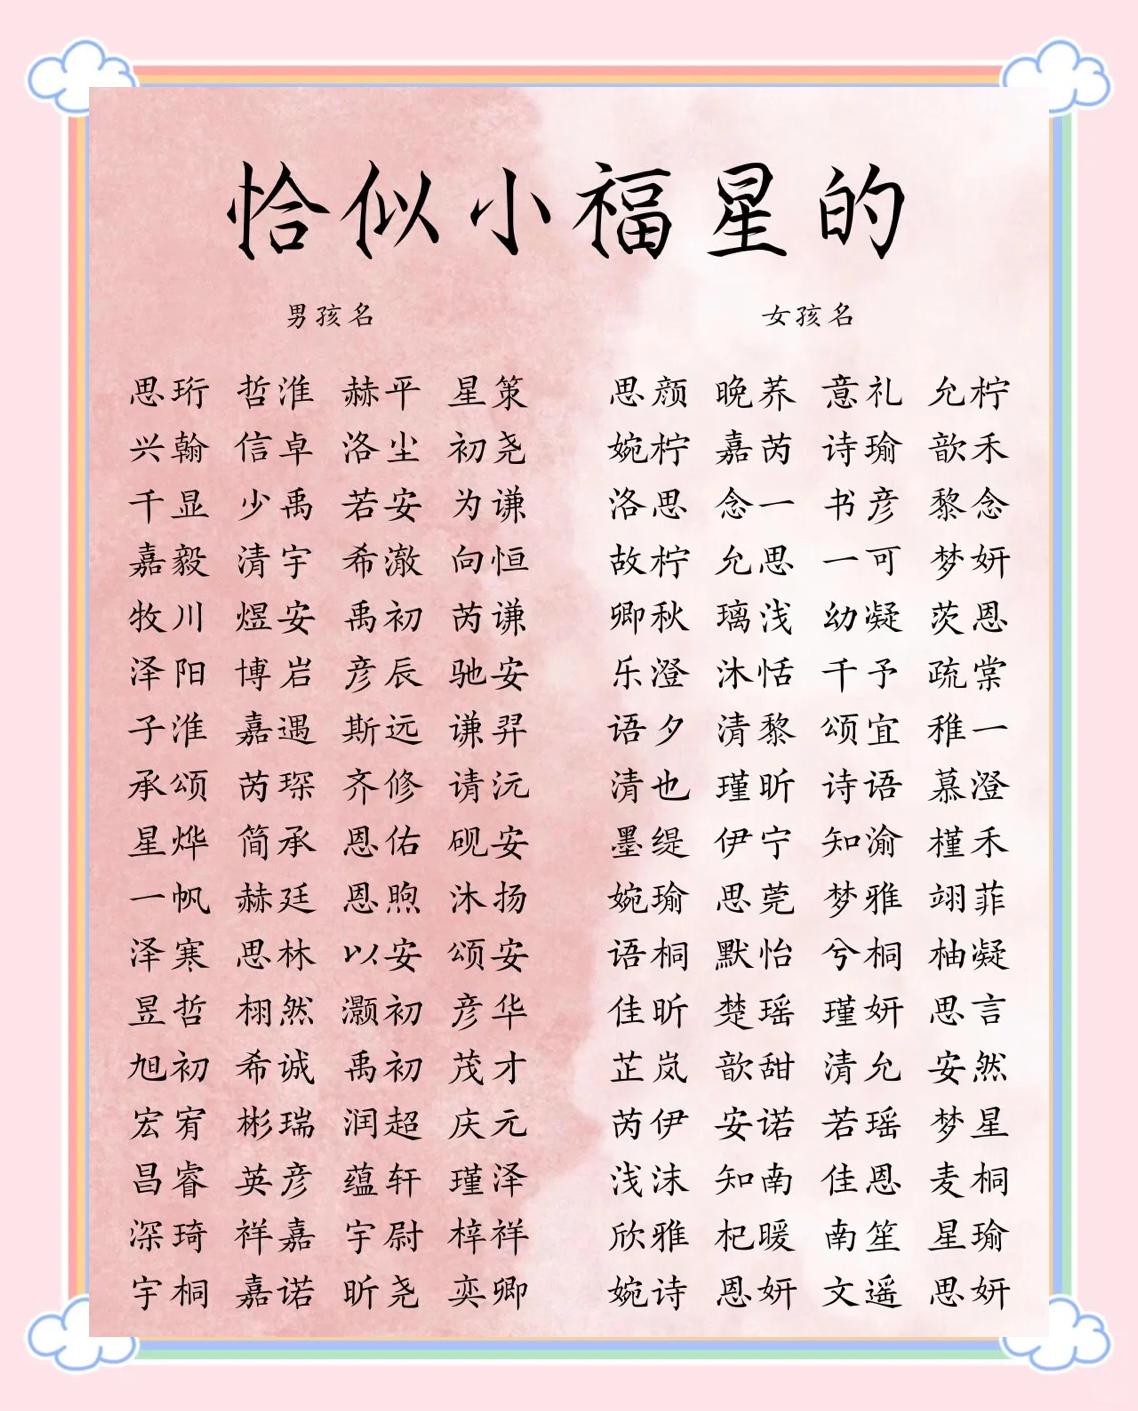 恰似小福星的
男孩名 女孩名
思珩 哲淮 赫平 星策 思颜 晚荞 意礼 允柠
兴翰 信卓 洛尘 初尧 婉柠 嘉芮 诗瑜 歆禾
千显 少禹 若安 为谦 洛思 念一 书彦 黎念
嘉毅 清宇 希澈 向恒 故柠 允思 一可 梦妍
牧川 煜安 禹初 芮谦 卿秋 璃浅 幼凝 茨恩
泽阳 博岩 彦辰 驰安 乐澄 沐恬 千予 疏棠
子淮 嘉遇 斯远 谦羿 语夕 清黎 颂宜 稚一
承颂 芮琛 齐修 请沅 清也 瑾昕 诗语 慕澄
星烨 简承 恩佑 砚安 墨缇 伊宁 知渝 槿禾
一帆 赫廷 恩煦 沐扬 婉瑜 思莞 梦雅 翊菲
泽寒 思林 以安 颂安 语桐 默怡 兮桐 柚凝
昱哲 栩然 灏初 彦华 佳昕 楚瑶 瑾妍 思言
旭初 希诚 禹初 茂才 芷岚 歆甜 清允 安然
宏宥 彬瑞 润超 庆元 芮伊 安诺 若瑶 梦星
昌睿 英彦 蕴轩 瑾泽 浅沫 知南 佳恩 麦桐
深琦 祥嘉 宇尉 梓祥 欣雅 杞暖 南笙 星瑜
宇桐 嘉诺 昕尧 奕卿 婉诗 恩妍 文遥 思妍